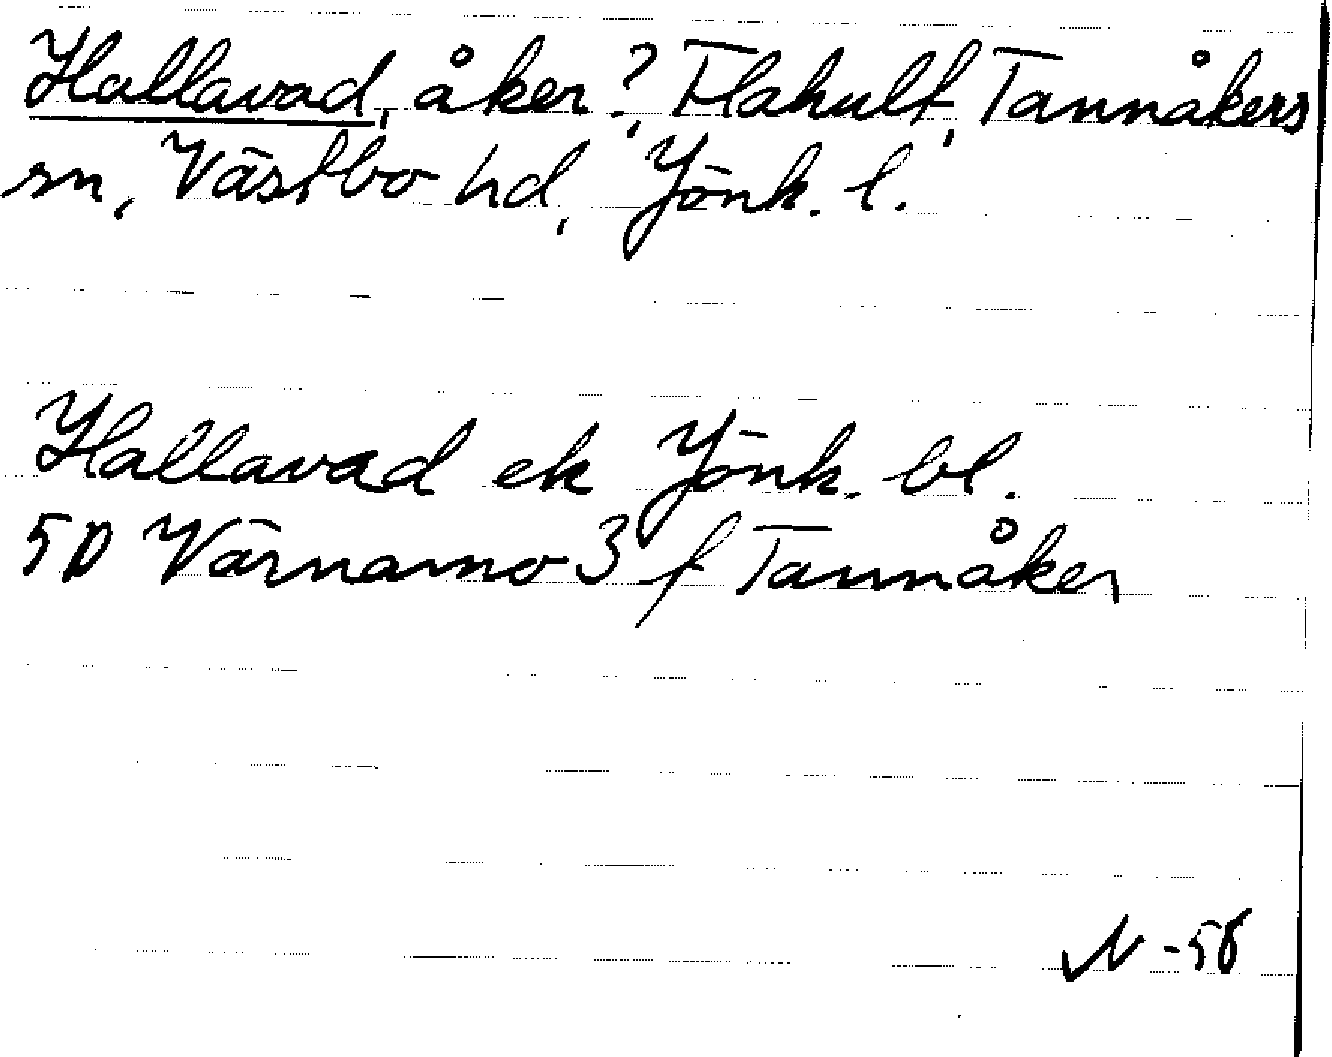 Hallavad, åker?, Flahult, Tannåkers
sn, Västbo hd, Jönk. l.
Hallavad ek Jönk. bl.
5D Värnamo 3 f Tannåker